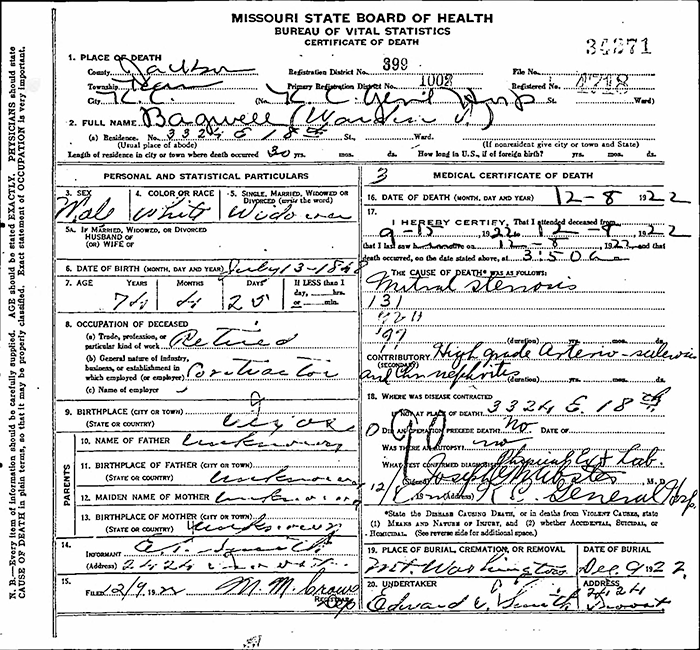 MISSOURI STATE BOARD OF HEALTH
BUREAU OF VITAL STATISTICS
CERTIFICATE OF DEATH
34371
1. PLACE OF DEATH
County Jackson Registration District No. 399 File No.
Township Kaw Primary Registration District No. 1002 Registered No. 4718
City K.C. (No. K C Genl Hosp St. Ward)
2. FULL NAME Bagwell
(a) Residence. No. 3324 E 18th St., Ward.
(Usual place of abode) (If nonresident give city or town and State)
Length of residence in city or town where death occurred 30 yrs. mos. ds. How long in U.S., if of foreign birth? yrs. mos. ds.
PERSONAL AND STATISTICAL PARTICULARS
3. SEX
Male
4. COLOR OR RACE
White
5. SINGLE, MARRIED, WIDOWED OR DIVORCED (write the word)
Widower
5A. IF MARRIED, WIDOWED, OR DIVORCED
HUSBAND OF
(OR) WIFE OF
6. DATE OF BIRTH (MONTH, DAY AND YEAR) July 13-1848
7. AGE YEARS MONTHS DAYS If LESS than 1
day, hrs.
or min.
74 4 25
8. OCCUPATION OF DECEASED
(a) Trade, profession, or
particular kind of work Retired
(b) General nature of industry,
business, or establishment in
which employed (or employer) Contractor
(c) Name of employer
9. BIRTHPLACE (CITY OR TOWN)
(STATE OR COUNTRY)
PARENTS
10. NAME OF FATHER unknown
11. BIRTHPLACE OF FATHER (CITY OR TOWN)
(STATE OR COUNTRY) unknown
12. MAIDEN NAME OF MOTHER unknown
13. BIRTHPLACE OF MOTHER (CITY OR TOWN)
(STATE OR COUNTRY) unknown
14.
INFORMANT Smith
(Address) 2424
15.
FILED 12/9 1922 M. M. Crowe
REGISTRAR
Dep
3 MEDICAL CERTIFICATE OF DEATH
16. DATE OF DEATH (MONTH, DAY AND YEAR) 12-8 1922
17.
I HEREBY CERTIFY, That I attended deceased from
9-15, 1922, to 12-8, 1922
that I last saw h alive on 12-8, 1922, and that
death occurred, on the date stated above, at 3:50 a m.
THE CAUSE OF DEATH* WAS AS FOLLOWS:
Mitral stenosis
131
97
(duration) yrs. mos. ds.
CONTRIBUTORY High grade Arterio-sclerosis
(SECONDARY)
and Chr nephritis
(duration) yrs. mos. ds.
18. WHERE WAS DISEASE CONTRACTED
IF NOT AT PLACE OF DEATH? 3324 E. 18th
DID AN OPERATION PRECEDE DEATH? No DATE OF
90
WAS THERE AN AUTOPSY? no
WHAT TEST CONFIRMED DIAGNOSIS? Lab.
(Signed) Joseph Webster M.D.
12/8, 19 (Address) K C General Hosp
*State the DISEASE CAUSING DEATH, or in deaths from VIOLENT CAUSES, state
(1) MEANS AND NATURE OF INJURY, and (2) whether ACCIDENTAL, SUICIDAL, or
HOMICIDAL. (See reverse side for additional space.)
19. PLACE OF BURIAL, CREMATION, OR REMOVAL DATE OF BURIAL
Mt. Washington Dec 9 1922
20. UNDERTAKER ADDRESS
Edward Smith 2424
N. B.—Every item of information should be carefully supplied. AGE should be stated EXACTLY. PHYSICIANS should state
CAUSE OF DEATH in plain terms, so that it may be properly classified. Exact statement of OCCUPATION is very important.